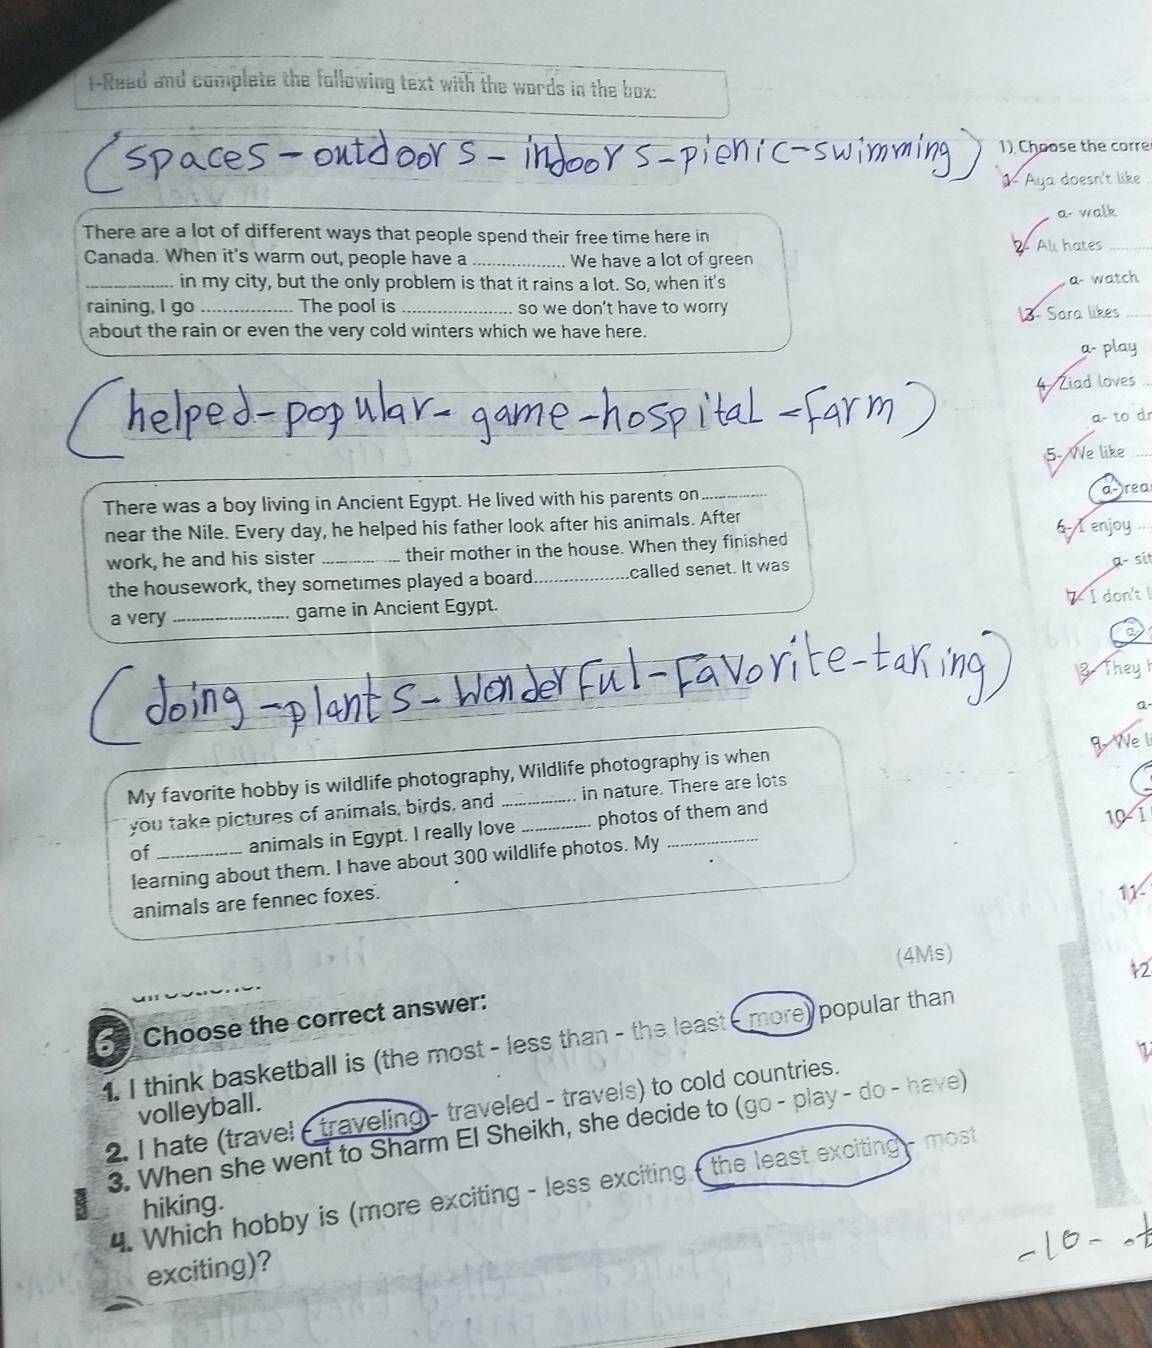 1-Read and complete the following text with the words in the box:
(spaces - outdoors - indoors - picnic - swimming)
There are a lot of different ways that people spend their free time here in
Canada. When it's warm out, people have a .................. We have a lot of green
.................. in my city, but the only problem is that it rains a lot. So, when it's
raining, I go .................. The pool is ...................... so we don't have to worry
about the rain or even the very cold winters which we have here.
(helped - popular - game - hospital - farm)
There was a boy living in Ancient Egypt. He lived with his parents on..............
near the Nile. Every day, he helped his father look after his animals. After
work, he and his sister ................ their mother in the house. When they finished
the housework, they sometimes played a board...................called senet. It was
a very ....................... game in Ancient Egypt.
(doing - plants - wonderful - Favorite - taking)
My favorite hobby is wildlife photography, Wildlife photography is when
you take pictures of animals, birds, and ............... in nature. There are lots
of ................. animals in Egypt. I really love .............. photos of them and
learning about them. I have about 300 wildlife photos. My ..................
animals are fennec foxes.
(4Ms)
6 Choose the correct answer:
1. I think basketball is (the most - less than - the least - more) popular than
volleyball.
2. I hate (travel - traveling - traveled - travels) to cold countries.
3. When she went to Sharm El Sheikh, she decide to (go - play - do - have)
hiking.
4. Which hobby is (more exciting - less exciting - the least exciting - most
exciting)?
1) Choose the corre
1- Aya doesn't like
a- walk
2- Ali hates ..........
a- watch
3- Sara likes .....
a- play
4- Ziad loves ..
a- to dr
5- We like ....
a- rea
6- I enjoy ...
a- sit
7- I don't l
a
8- They h
a-
9- We li
10- I
11-
12
-10-